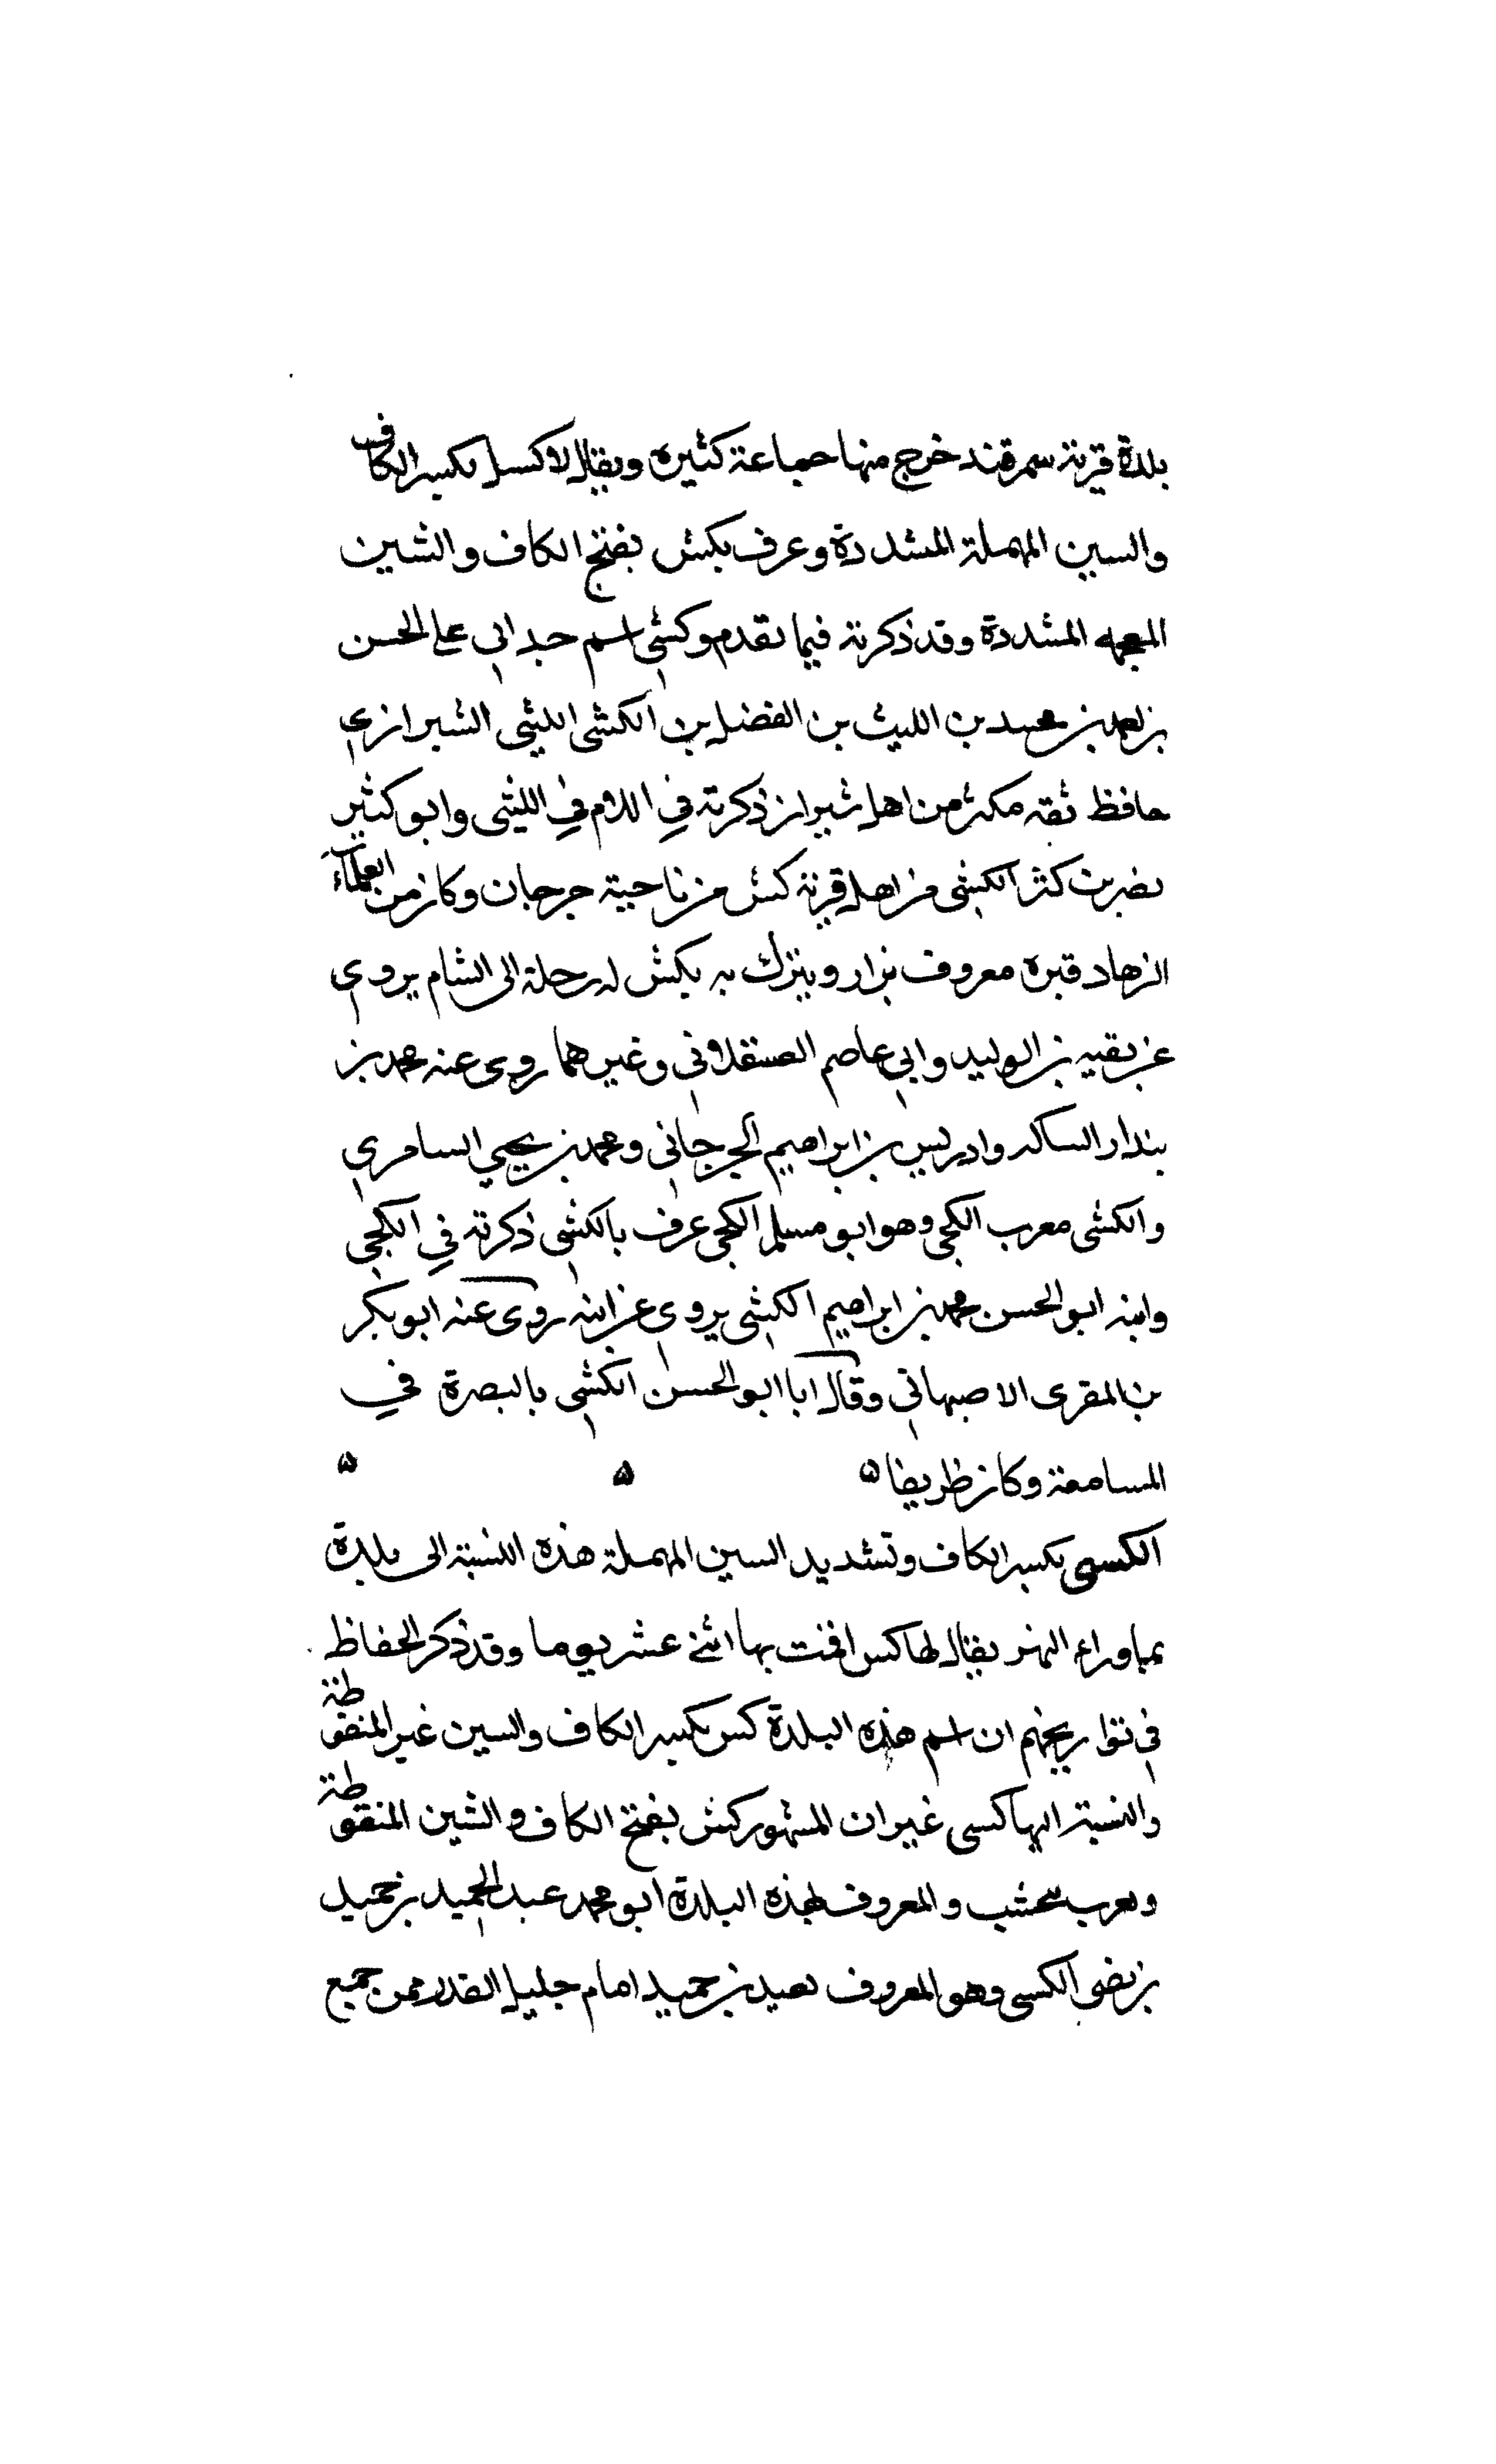 بلدة قريبة سمرقند خرج منها جماعة كثيرة ويقال لا كس بكسر الكاف
والسين المهملة المشددة وعرف بكش بفتح الكاف والشين
المعجمه المشددة وقد ذكرته فيما تقدم وكشي اسم جد ابي علي الحسن
بن احمد بن محمد بن الليث بن الفضل بن الكشى الليثى الشيرازي
حافظ ثقه مكثر من اهل شيراز ذكرته في اللام في الليثى وابو كثير
نضر بن كثر الكشى من اهل قرية كش من ناحية جرجان وكان من العلماء
الزهاد قبره معروف يزار ويتبرك به بكش له رحلة الى الشام يروي
عن بقيه بن الوليد وابي عاصم العسقلاني وغيرهما روى عنه محمد بن
بندار السالد وادريس بن ابراهيم الجرجاني ومحمد بن يحيي السامري
والكشى معرب الكجى وهو ابو مسلم الكجى عرف بالكشى ذكرته في الكجي
وابنه ابو الحسن محمد بن ابراهيم الكشى يروي عن ابيه روى عنه ابو بكر
بن المقرى الاصبهاني وقال ابا ابو الحسن الكشي بالبصرة في
المسامعة وكان ظريفا ه ه ه
الكسى بكسر الكاف وتشديد السين المهملة هذه النسبة الى بلدة
بماوراء النهر يقال لها كس اقمت بها اثني عشر يوما وقد ذكر الحفاظ
في تواريخهم ان اسم هذه البلدة كس بكسر الكاف والسين غير المنقوطة
والنسبة اليها كسى غير ان المشهور كش بفتح الكاف والشين المنقوطة
وبعرب نخشب والمعروف بهذه البلدة ابو محمد عبد الحميد بن حميد
بن نصر الكسى وهو المعروف بعبد بن حميد امام جليل القدر ممن جمع